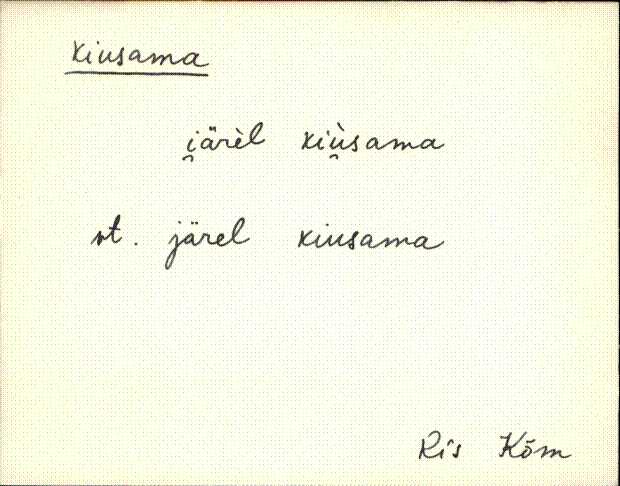 kiusama
i̯ärèl kiù̯sama
vt. järel kiusama
Ris Kõm